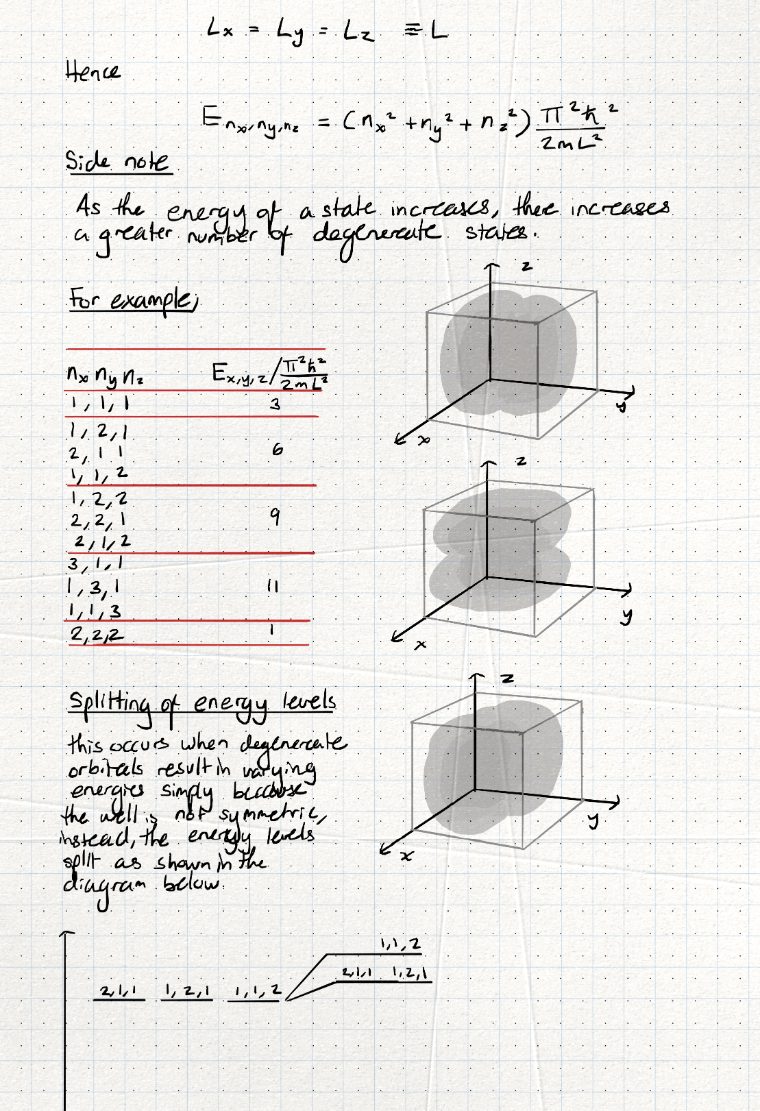 Lx = Ly = Lz ≡ L
Hence
E nx, ny, nz = (nx² + ny² + nz²) π²ħ² / 2mL²
Side note
As the energy of a state increases, there increases
a greater number of degenerate states.
For example;
nx ny nz Ex,y,z / π²ħ² / 2mL²
1, 1, 1 3
1, 2, 1
2, 1 1 6
1, 1, 2
1, 2, 2
2, 2, 1 9
2, 1, 2
3, 1, 1
1, 3, 1 11
1, 1, 3
2, 2, 2 1
z
y
x
z
y
x
z
y
x
Splitting of energy levels
this occurs when degenereate
orbitals result in varying
energies simply because
the well is not symmetric,
instead, the energy levels
split as shown in the
diagram below.
1, 1, 2
2, 1, 1 1, 2, 1
2, 1, 1 1, 2, 1 1, 1, 2